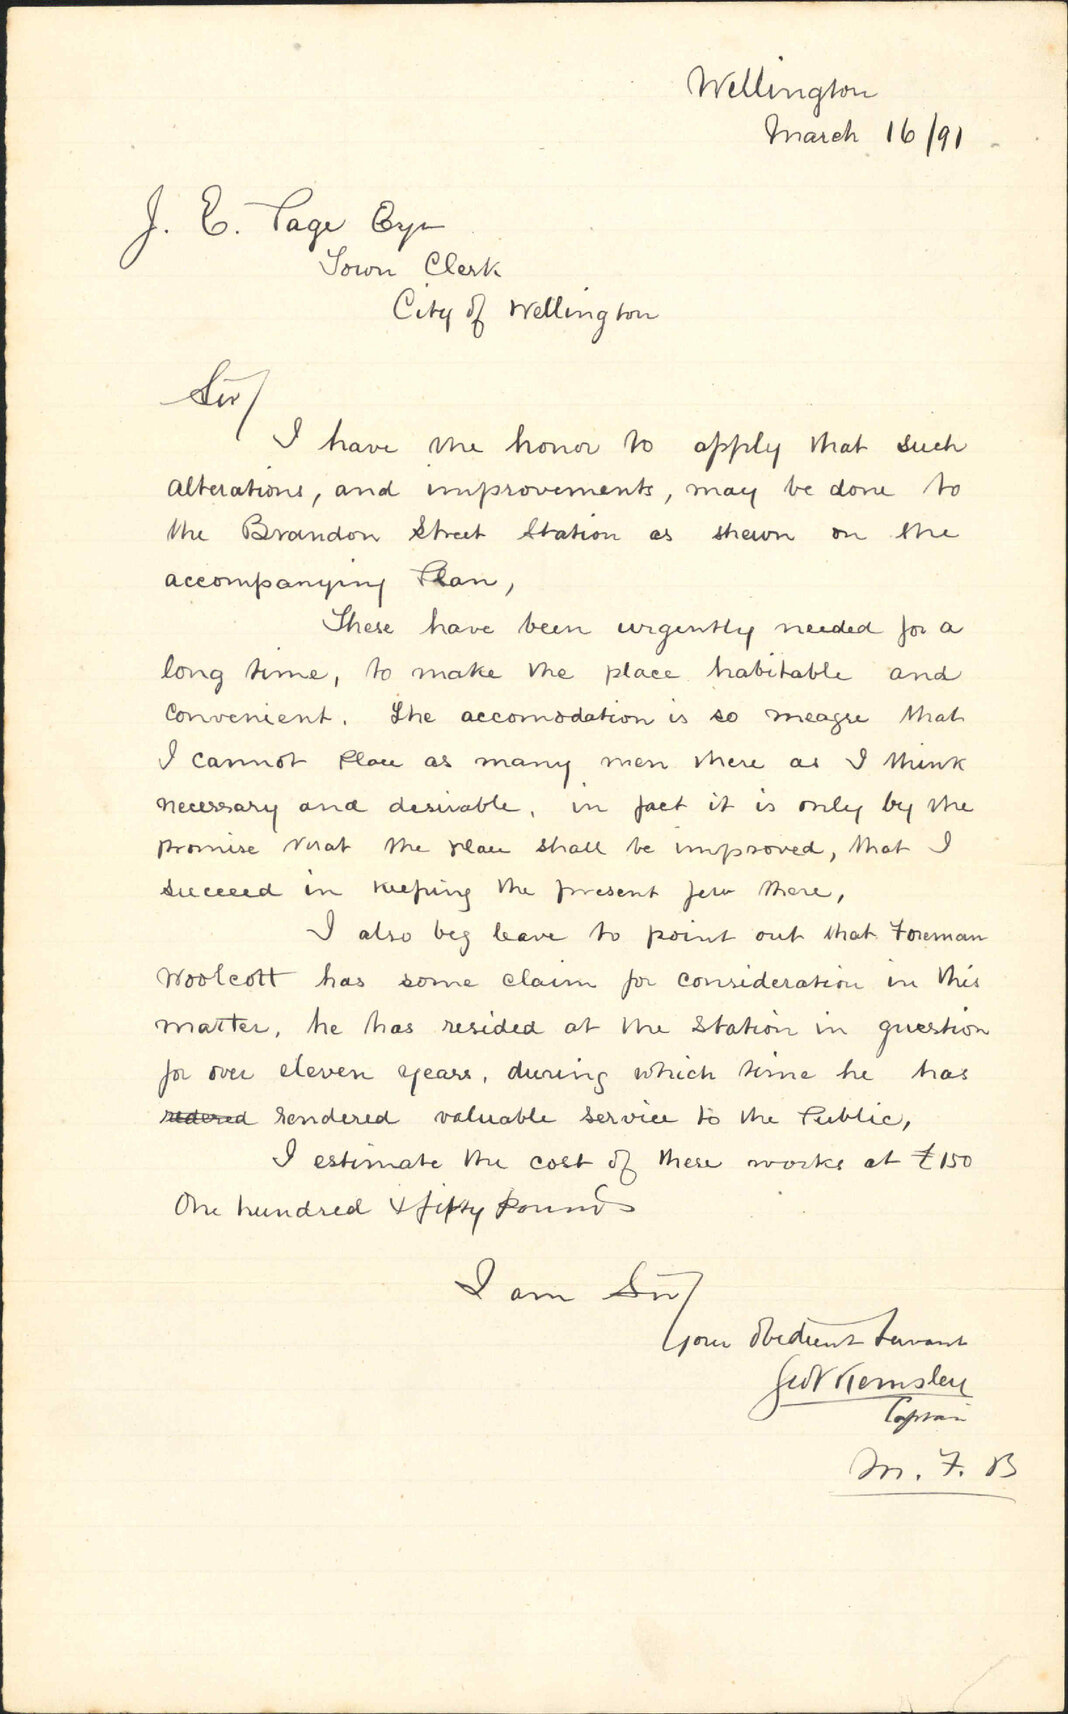 Wellington
March 16/91
J. E. Page Esqr
Town Clerk
City of Wellington
Sir/
I have the honor to apply that such
alterations, and improvements, may be done to
the Brandon Street Station as shewn on the
accompanying Plan,
These have been urgently needed for a
long time, to make the place habitable and
convenient. The accomodation is so meagre that
I cannot place as many men there as I think
necessary and desirable, in fact it is only by the
promise that the place shall be improved, that I
succeed in keeping the present few there,
I also beg leave to point out that Foreman
Woolcott has some claim for consideration in this
matter, he has resided at the Station in question
for over eleven years, during which time he has
redered rendered valuable service to the Public,
I estimate the cost of these works at £150
One hundred & fifty Pounds
I am Sir/
Your obedient Servant
Kemsley
Captain
M. F. B